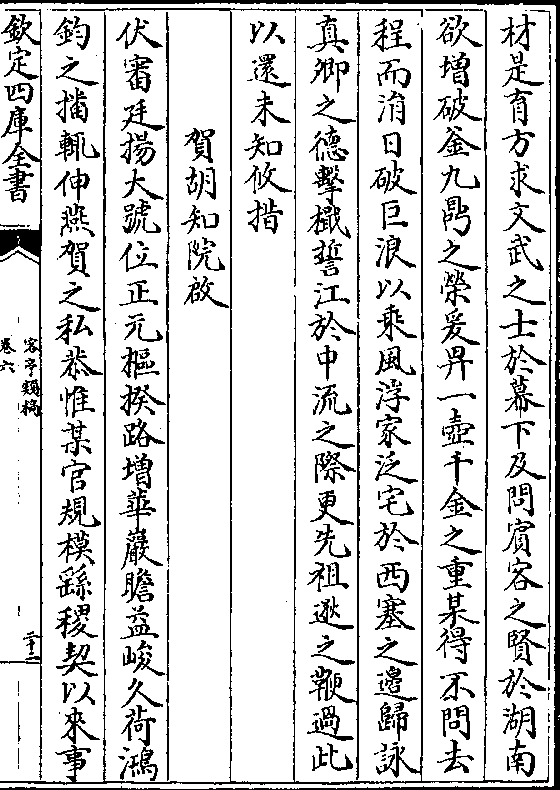 材是育方求文武之士於幕下及問賓客之賢於湖南
欲增破釜九鼎之榮爰畀一壺千金之重某得不問去
程而涓日破巨浪以乘風浮家泛宅於西塞之邊歸詠
真卿之德擊檝誓江於中流之際更先祖逖之鞭過此
以還未知攸措
賀胡知院啟
伏審廷揚大號位正元樞揆路增華巖瞻益峻久荷鴻
鈞之播輒伸燕賀之私恭惟某官規模繇稷契以來事
欽定四庫全書
客亭類稿
卷六
二十二